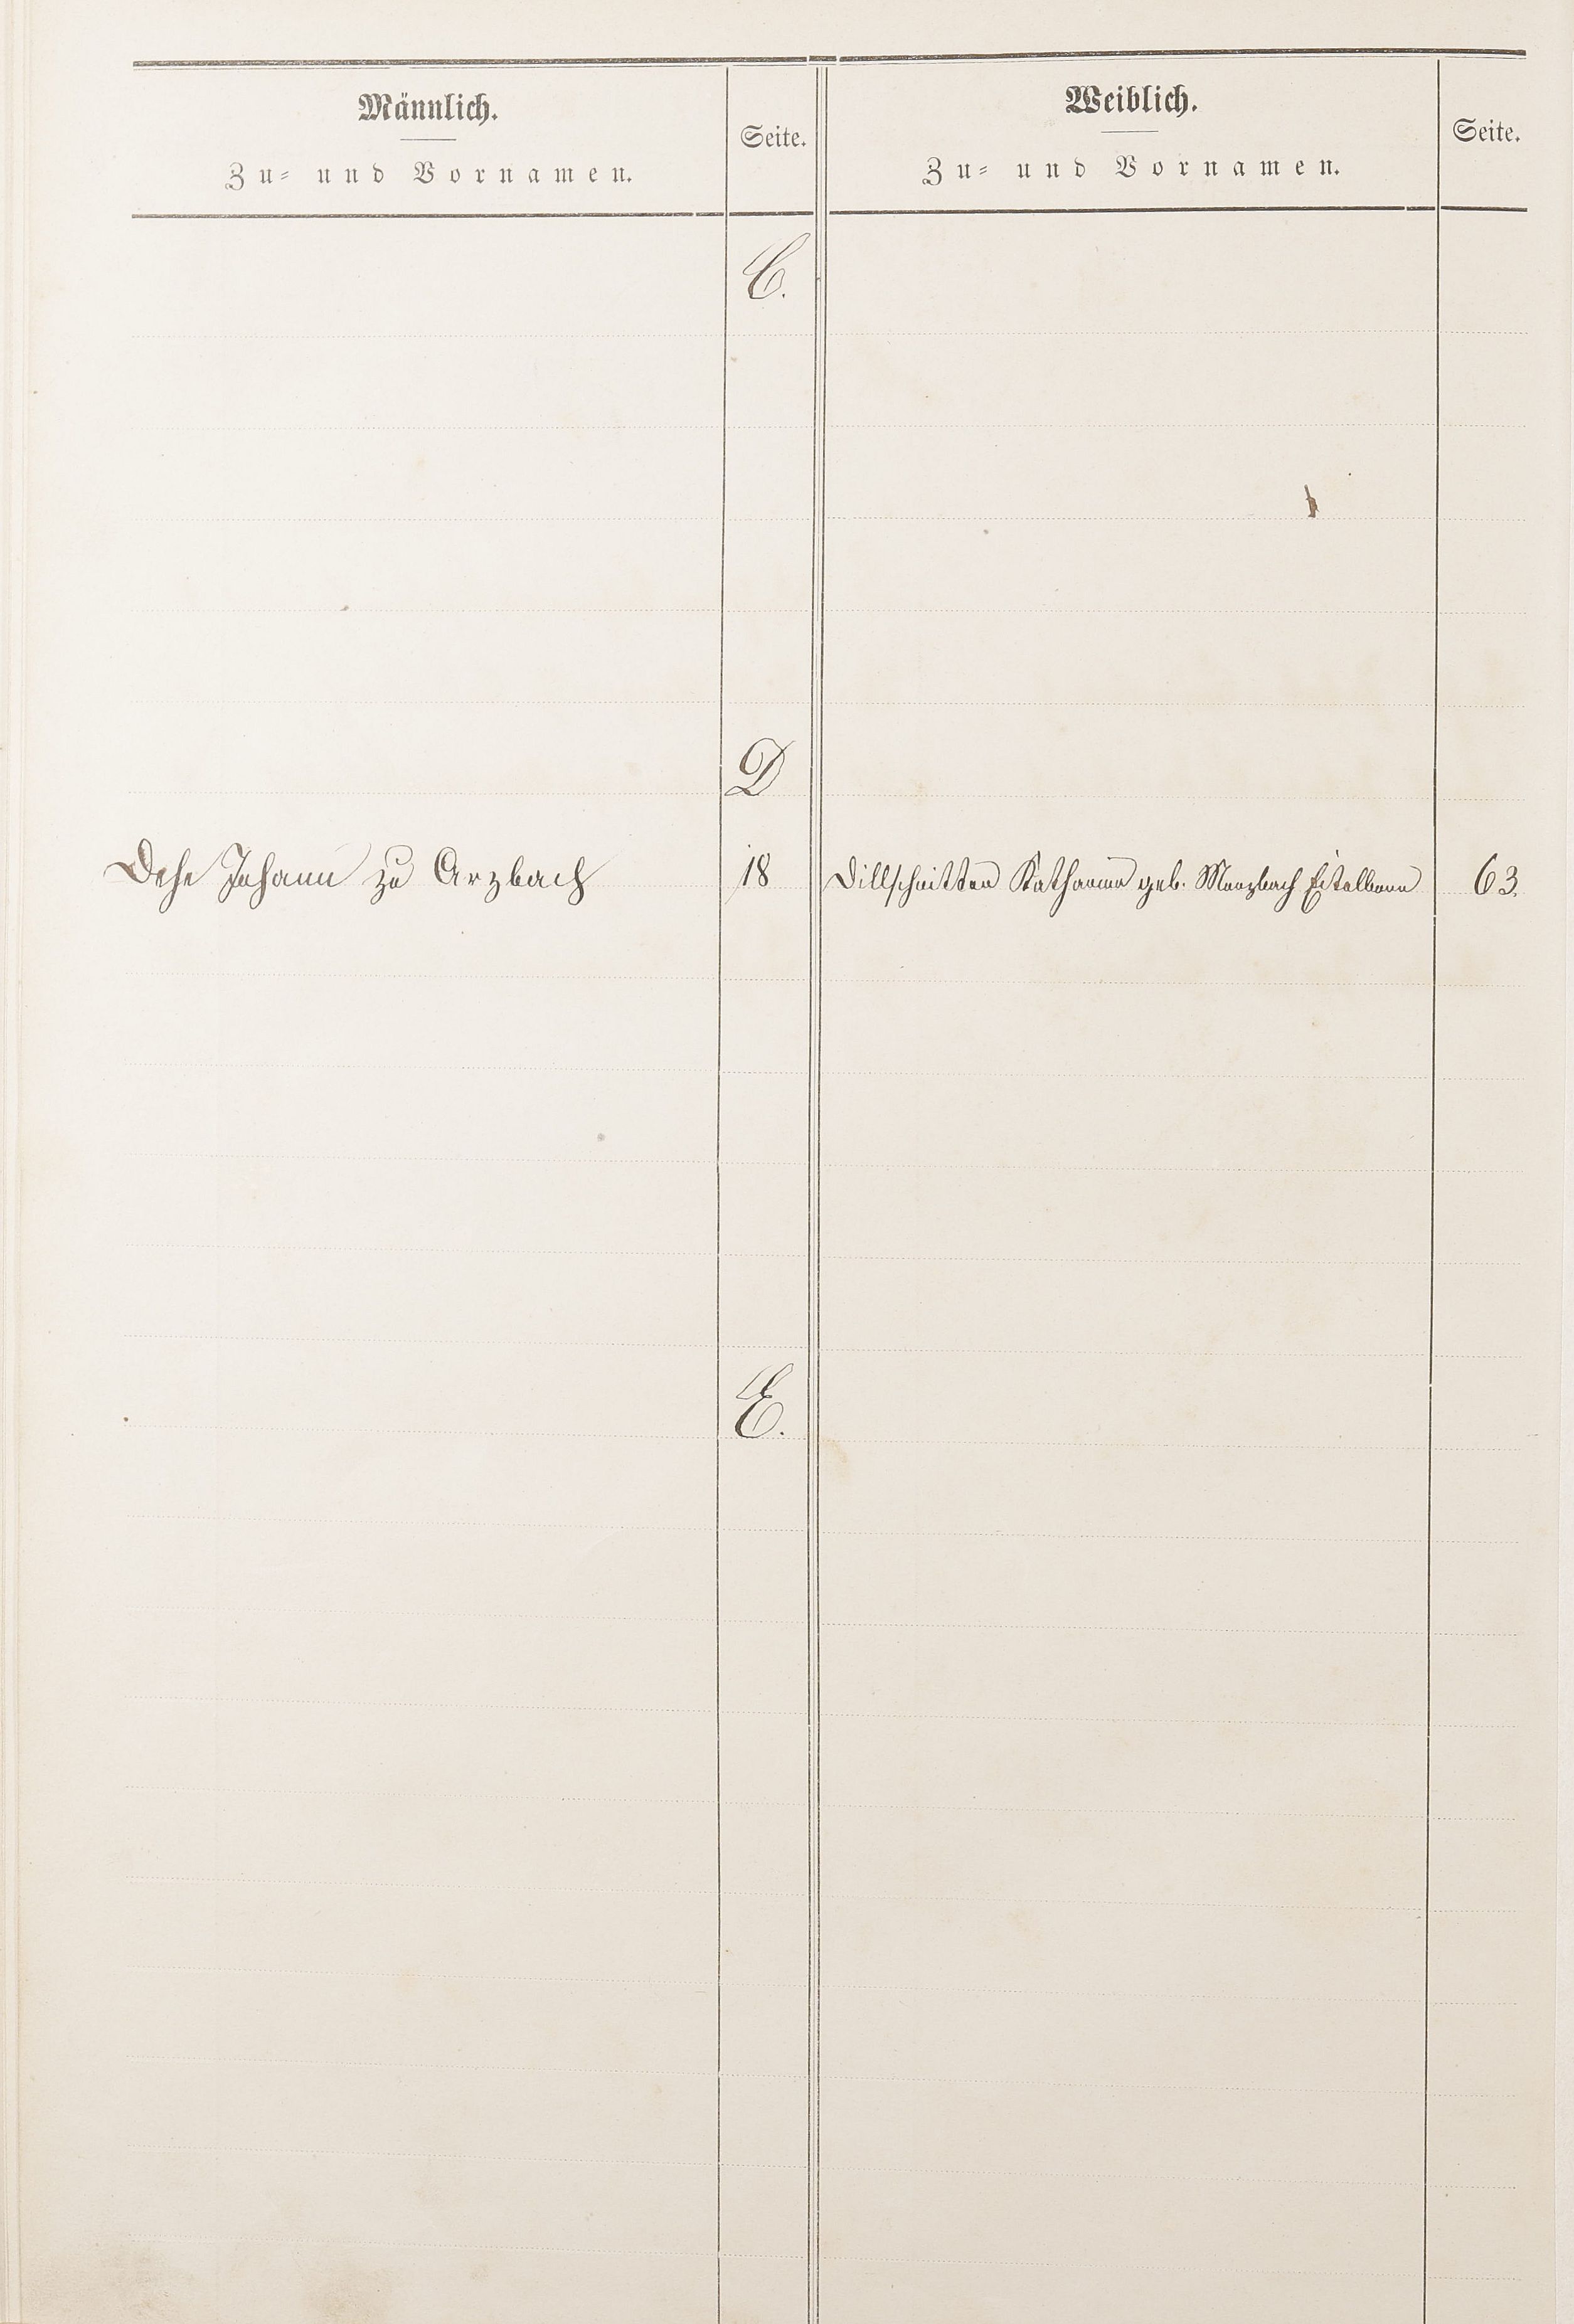 Männlich.
Zu- und Vornamen.
Seite.
Weiblich.
Zu- und Vornamen.
Seite.
C.
D
Dehe Johann zu Arzbach 18
Dillschnitter Katharina geb. Marzbach Eitelborn 63.
E.